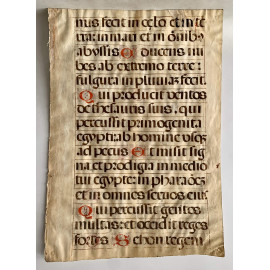 nus fecit in celo et in ter
ra: in mari et in oi̅bꝰ
abyssis Educens nu
bes ab extremo terre:
fulgura in pluuiaz fecit.
Qui producit ventos
de thesauris suis. qui
percussit primogenita
egypti: ab homine vsqz
ad pecus Et misit signa
et prodigia in medio
tui egypte: in pharaonē
et in omnes seruos eius
Qui percussit gentes
multas: et occidit reges
fortes Sehon regem